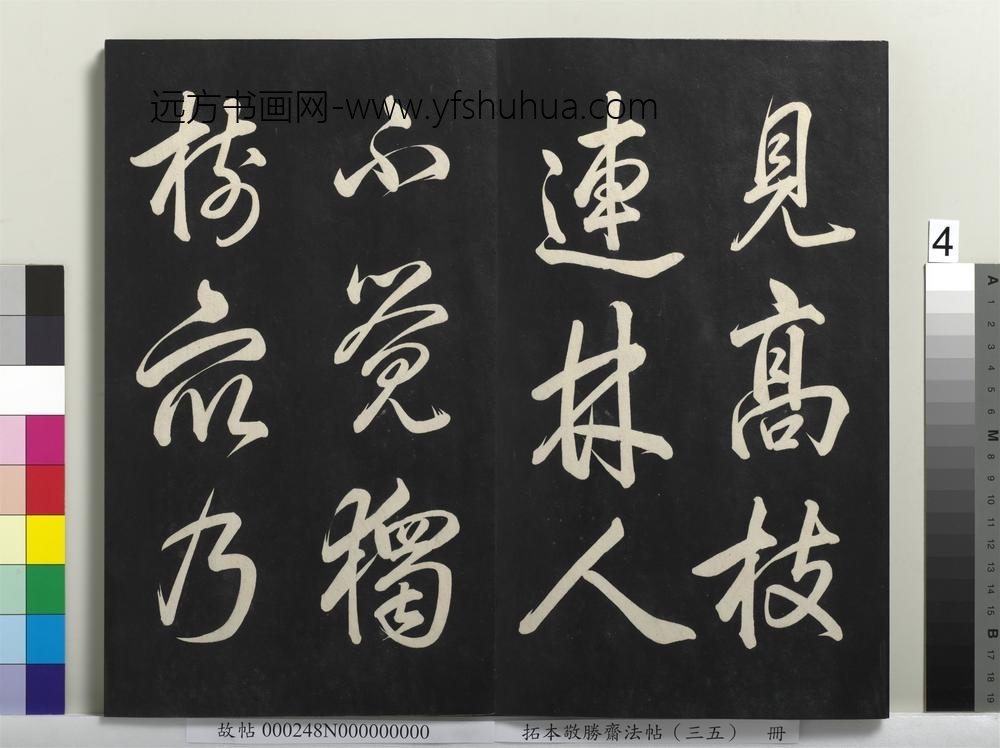 远方书画网-www.yfshuhua.com
見高枝
連林人
不覺獨
樹眾乃
4
A
1
2
3
4
5
6
M
8
9
10
11
12
13
14
15
B
17
18
19
故帖 000248N000000000
拓本敬勝齋法帖（三五） 冊